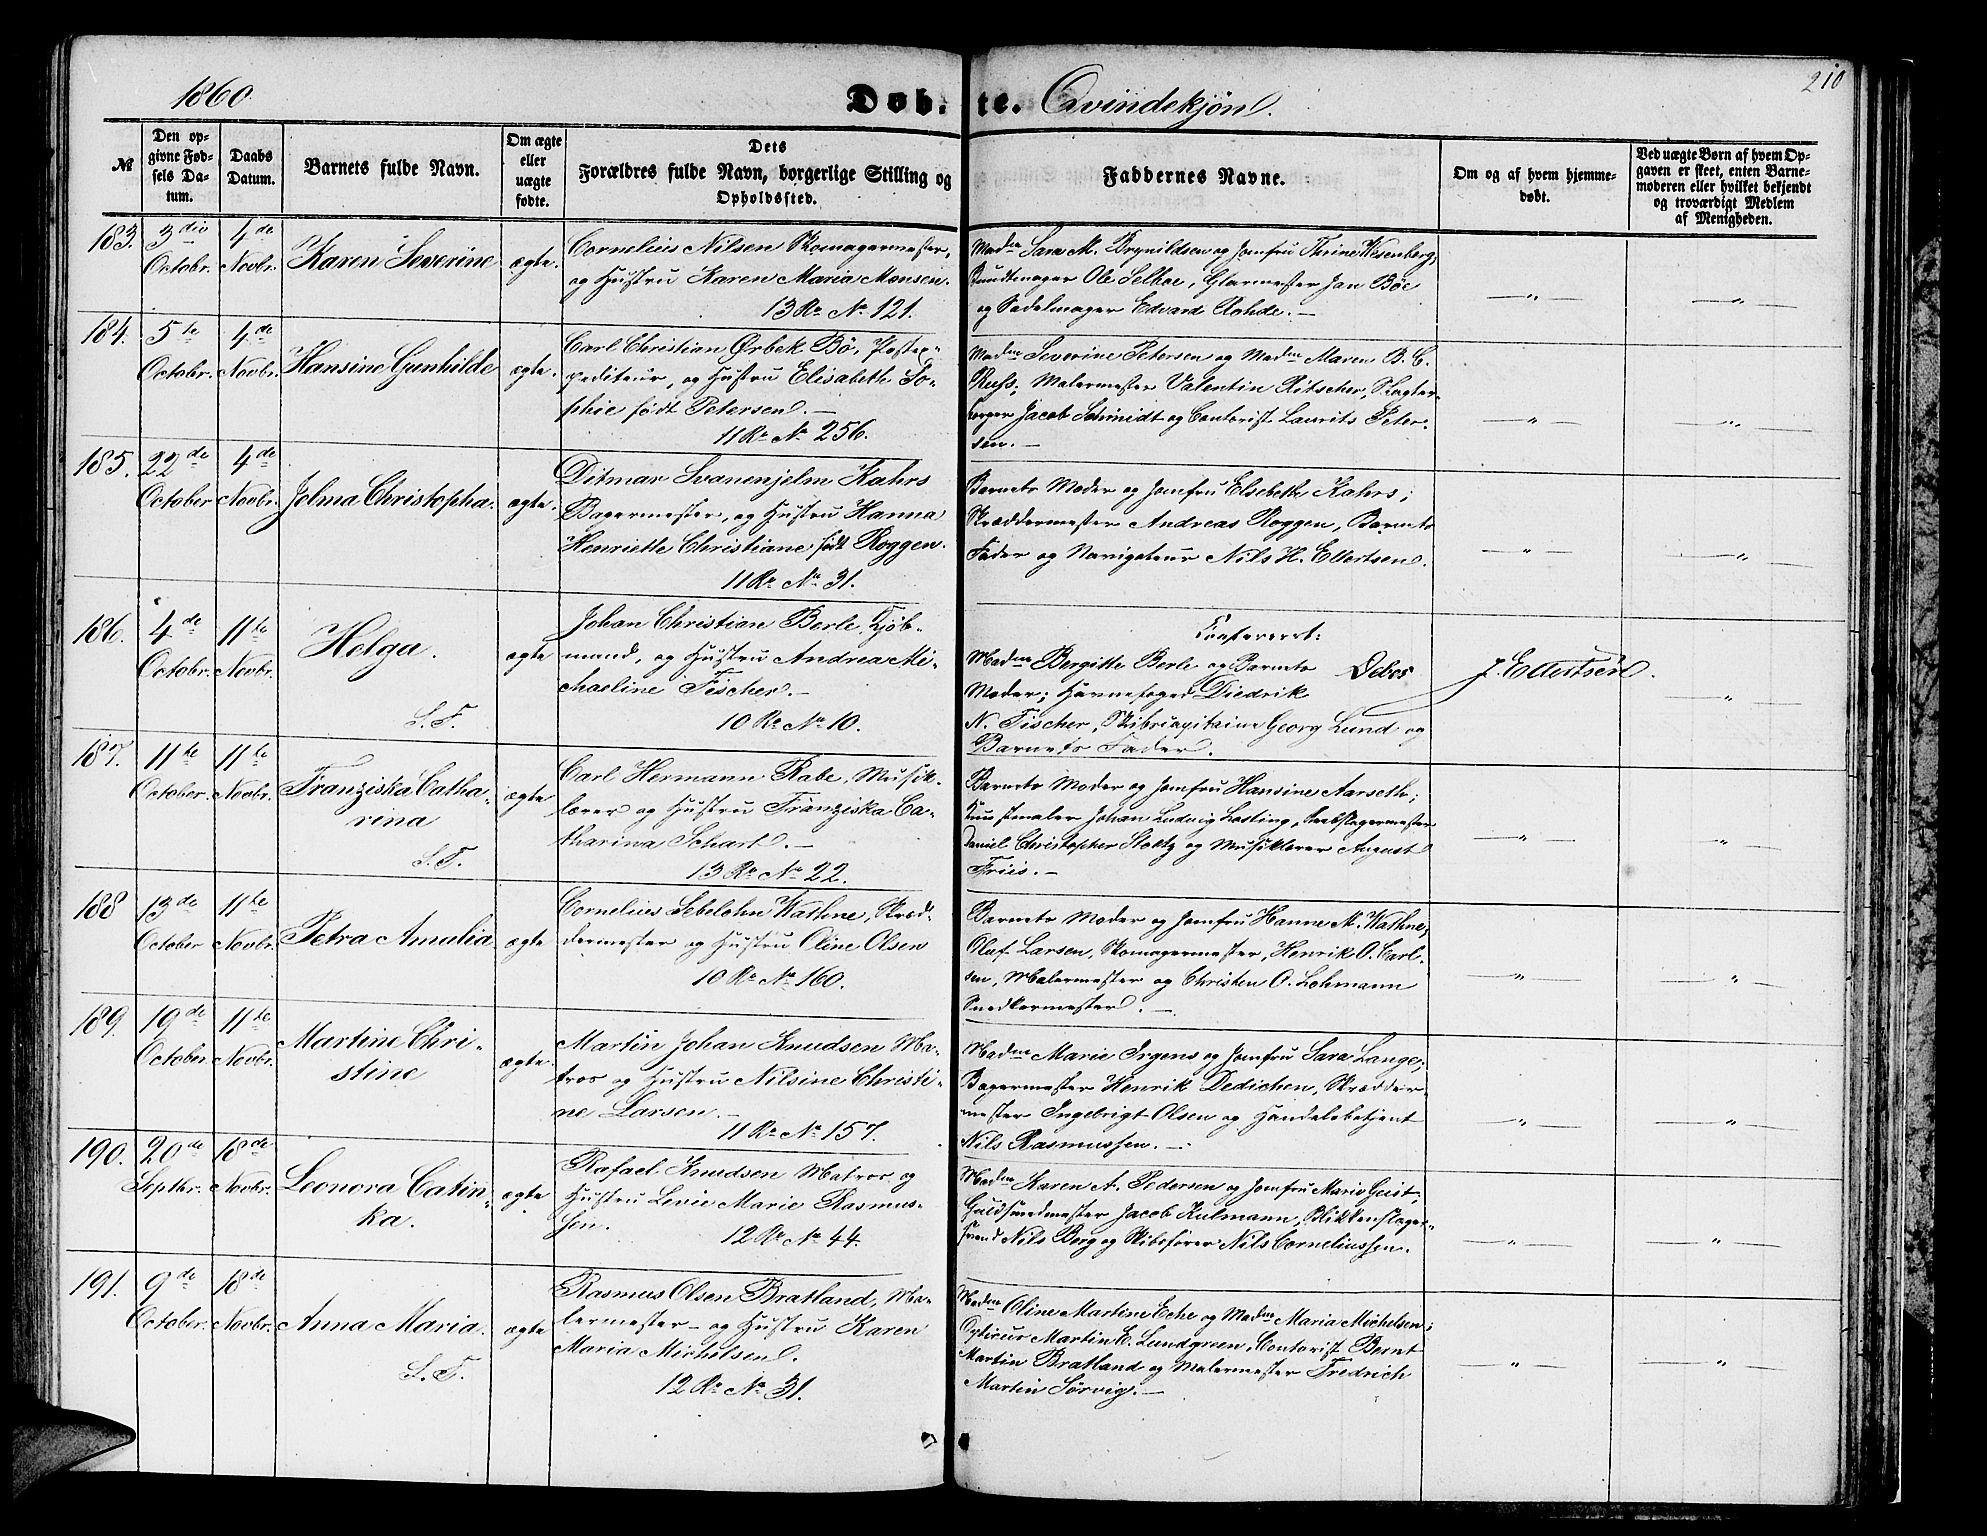 1860
Døb-te. Qvindekjøn.
210
№
Den op-
givne Fød-
sels Da-
tum.
Daabs
Datum.
Barnets fulde Navn.
Om ægte
eller
uægte
fødte.
Dets
Forældres fulde Navn, borgerlige Stilling og
Opholdssted.
Faddernes Navne.
Om og af hvem hjemme-
døbt.
Ved uægte Børn af hvem Op-
gaven er skeet, enten Barne-
moderen eller hvilket bekjendt
og troværdigt Medlem
af Menigheden.
183.
3die
Octobr.
4de
Novbr.
Karen Severine
ægte.
Cornelius Nilsen Skomagermester,
og Hustru Karen Maria Monsen.
13 Re No 121.
Madme Sara M. Brynildsen og Jomfru Thrine Wesenberg,
Bundtmager Ole Selboe, Glarmester Jan Böe
og Sadelmager Edvard Rohde. —
— „ —
— „ —
184.
5te
Octobr.
4de
Novbr.
Hansine Gunhilde
ægte.
Carl Christian Ørbek Bö, Postex-
pediteur, og Hustru Elisabeth So-
phie født Petersen. —
11 Re No 256.
Madme Severine Petersen og Madme Maren B. C.
Kuhs, Malermester Valentin Ritscher, Slagter-
borger Jacob Schmidt og Contorist Laurits Peter-
sen. —
— „ —
— „ —
185.
22de
October
4de
Novbr.
Jolma Christopha.
ægte.
Ditmar Svanenjelm Kahrs
Bagermester, og Hustru Hanna
Henriette Christiane født Roggen.
11 Re No 31.
Barnets Moder og Jomfru Elsebeth Kahrs;
Skræddermester Andreas Roggen, Barnets
Fader og Navigateur Nils H. Ellertsen.
— „ —
— „ —
186.
4de
Octobr.
11te
Novbr.
Helga.
S. F.
ægte
Johan Christian Berle, Kjöb-
mand, og Hustru Andrea Mi-
chaeline Fischer. —
10 Re No 10.
Confereret:
Madme Bergitte Berle og Barnets
Moder; Havnefoged Diedrik
N. Fischer, Skibscapitaine Georg Lund og
Barnets Fader.
Debes
J. Ellertsen.
— „ —
187.
11te
October.
11te
Novbr.
Franziska Catha-
rina
S. F.
ægte
Carl Hermann Rabe, Musik-
lærer og Hustru Franziska Ca-
tharina Schart. —
13 Re No 22.
Barnets Moder og Jomfru Hansine Aarseth;
Kunstmaler Johan Ludvig Losting, Reebslagermester
Daniel Christopher Stoltz og Musiklærer August
Friis. —
— „ —
— „ —
188
13de
October
11te
Novbr.
Petra Amalia
ægte
Cornelius Lebelohn Wathne, Skræd-
dermester og Hustru Oline Olsen
10 Re No 160.
Barnets Moder og Jomfru Hanne M. Wathne,
Oluf Larsen, Skomagermester, Henrik O. Carl-
sen, Malermester og Christen O. Lohmann
Snedkermester. —
— „ —
— „ —
189.
19de
October
11te
Novbr.
Martine Chri-
stine
ægte.
Martin Johan Knudsen Ma-
tros og Hustru Nilsine Christi-
ne Larsen. —
11 Re No 157.
Madme Marie Irgens og Jomfru Sara Lange;
Bagermester Henrik Dedichen, Skrædder-
mester Ingebrigt Olsen og Handelsbetjent
Nils Rasmussen. —
— „ —
— „ —
190.
20de
Septbr.
18de
Novbr.
Leonora Catin-
ka.
ægte
Rafael Knudsen Matros og
Hustru Levie Marie Rasmus-
sen.
12 Re No 44.
Madme Karen A. Pedersen og Jomfru Marie Geist,
Guldsmedmester Jacob Kulmann, Blikkenslager-
svend Nils Berg og Skibsfører Nils Corneliussen.
— „ —
— „ —
191.
9de
October.
18de
Novbr.
Anna Maria.
S. F.
ægte
Rasmus Olsen Bratland, Ma-
lermester og Hustru Karen
Maria Michelsen.
12 Re No 31.
Madme Oline Martine Eche og Madme Maria Michelsen;
Opticus Martin E. Lundgreen, Contorist Bernt
Martin Bratland og Malermester Fredrich
Martin Sörvig. —
„ —
— „ —